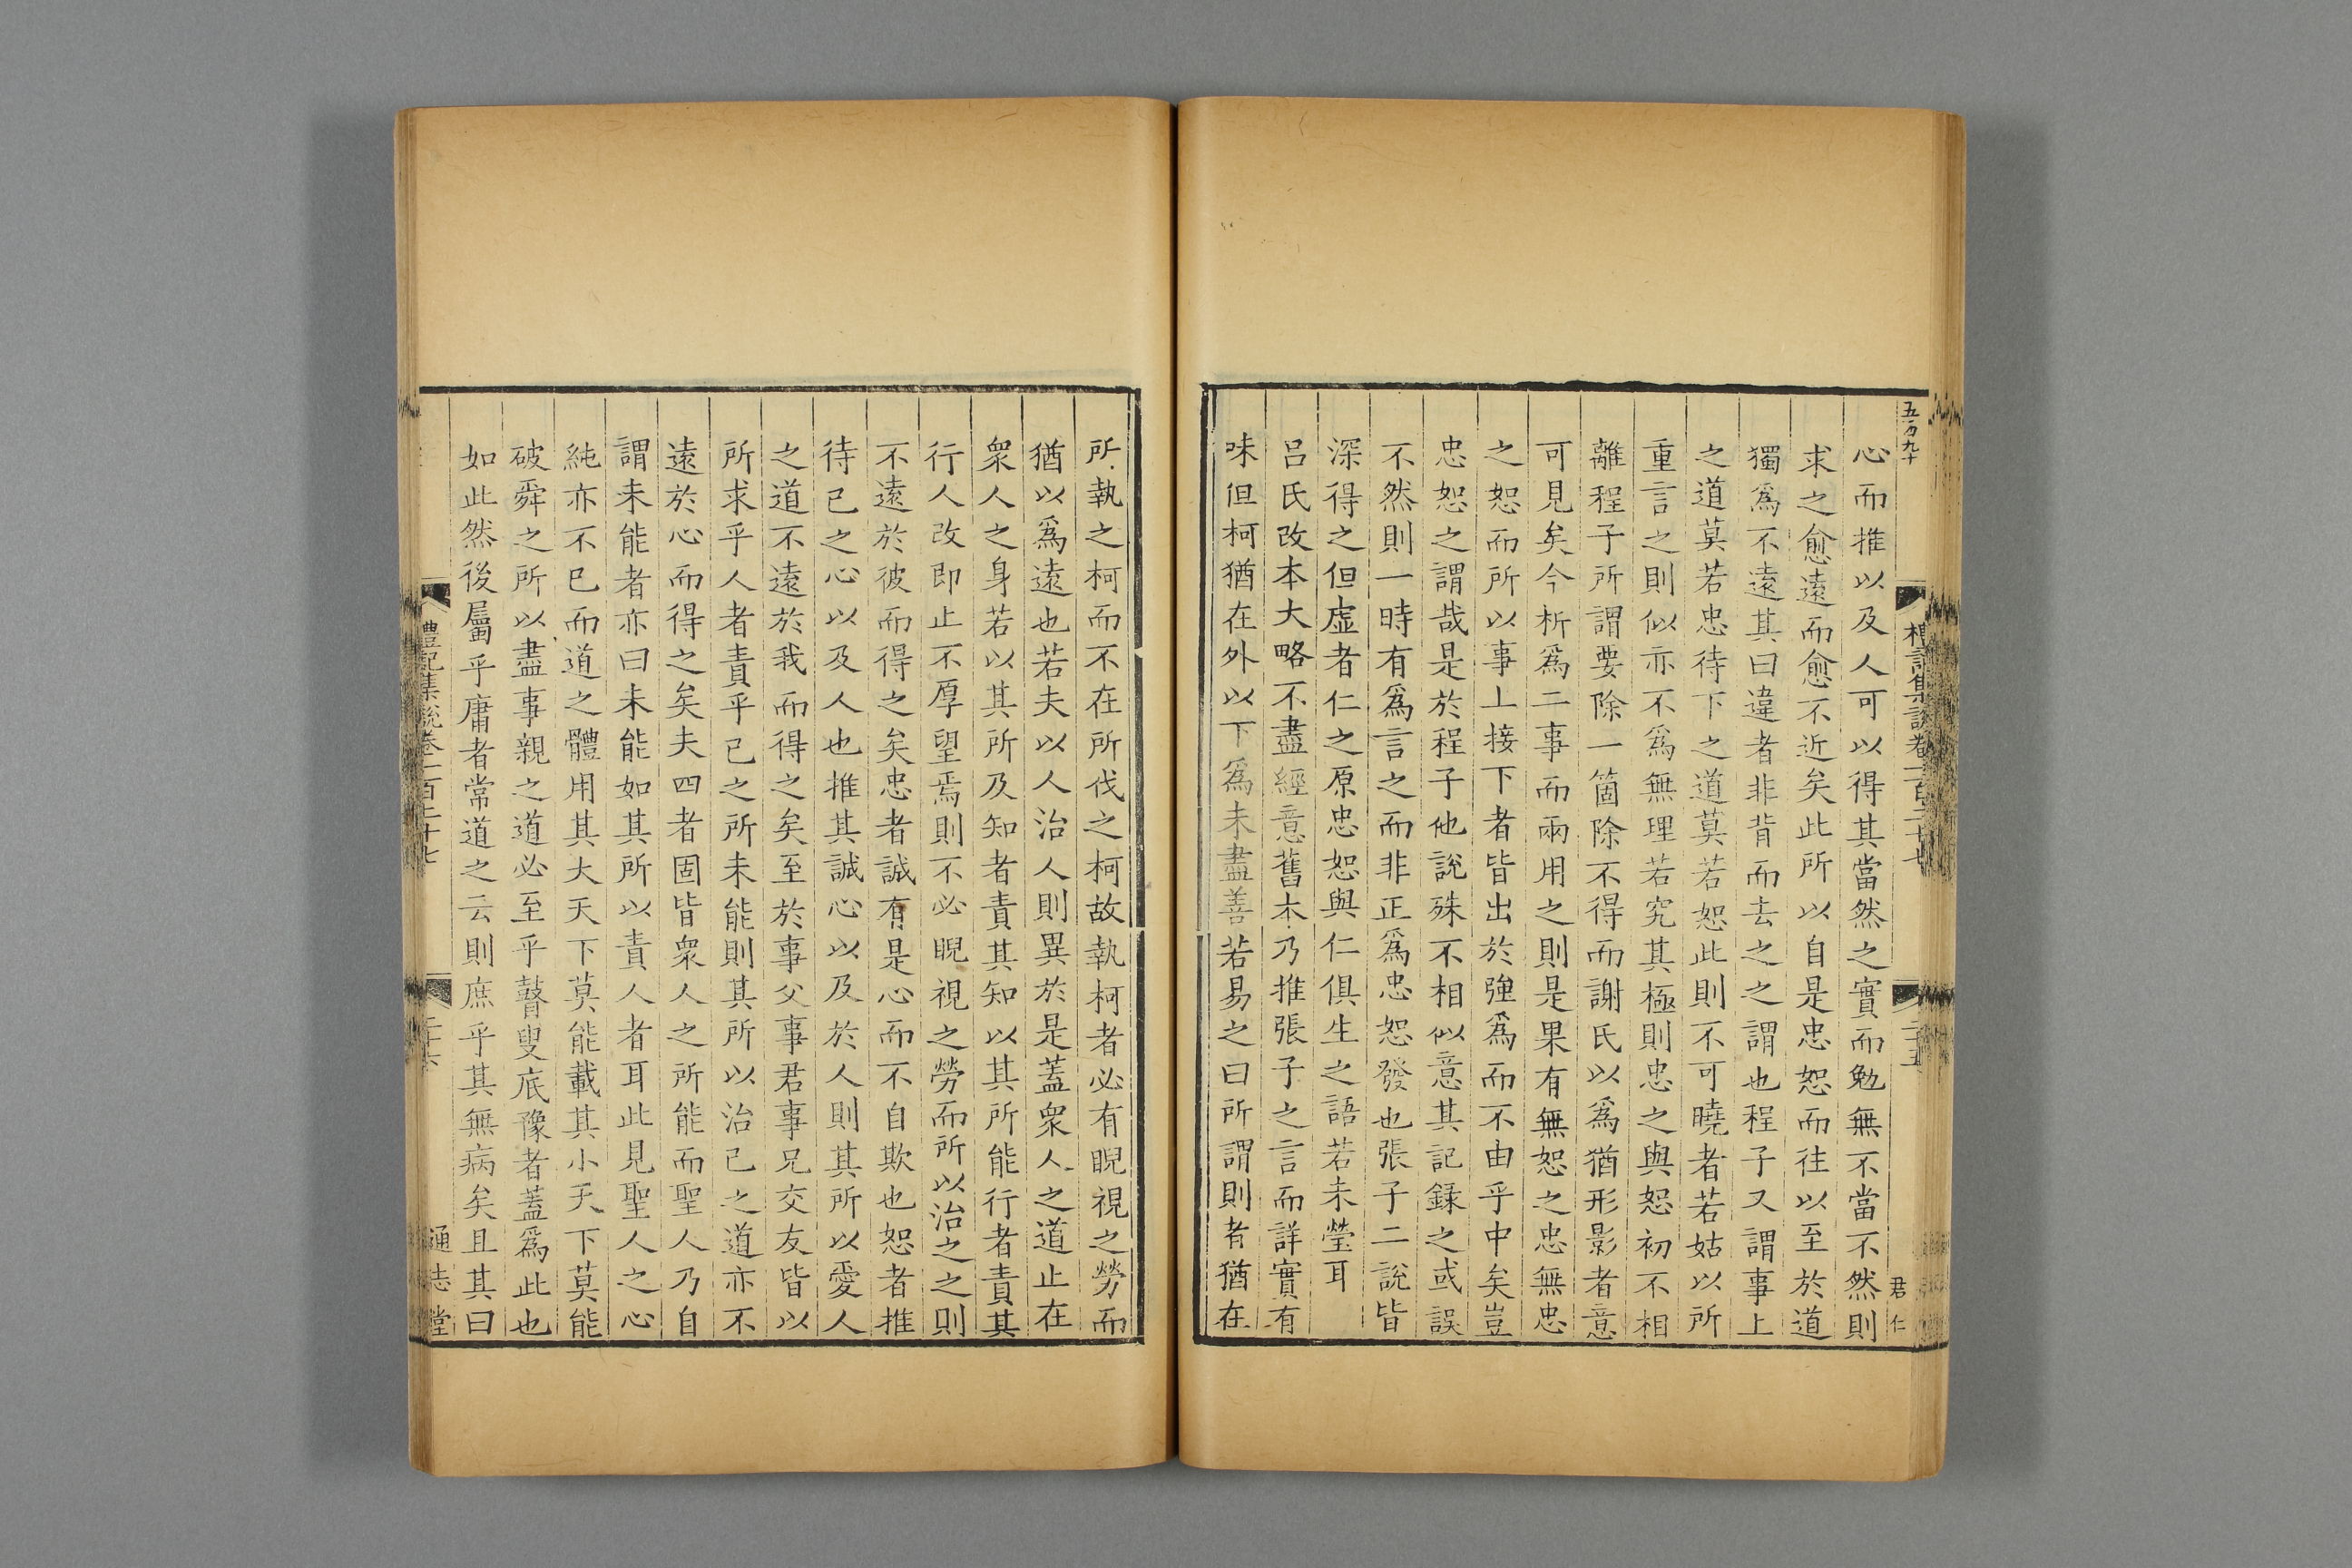 五百九十
禮記集說卷一百二十七
二十五
君仁
心而推以及人可以得其當然之實而勉無不當不然則
求之愈遠而愈不近矣此所以自是忠恕而往以至於道
獨爲不遠其曰違者非背而去之之謂也程子又謂事上
之道莫若忠待下之道莫若恕此則不可曉者若姑以所
重言之則似亦不爲無理若究其極則忠之與恕初不相
離程子所謂要除一箇除不得而謝氏以爲猶形影者意
可見矣今析爲二事而兩用之則是果有無恕之忠無忠
之恕而所以事上接下者皆出於強爲而不由乎中矣豈
忠恕之謂哉是於程子他說殊不相似意其記錄之或誤
不然則一時有爲言之而非正爲忠恕發也張子二說皆
深得之但虛者仁之原忠恕與仁俱生之語若未瑩耳
呂氏改本大略不盡經意舊本乃推張子之言而詳實有
味但柯猶在外以下爲未盡善若易之曰所謂則者猶在
所執之柯而不在所伐之柯故執柯者必有睨視之勞而
猶以爲遠也若夫以人治人則異於是蓋衆人之道止在
衆人之身若以其所及知者責其知以其所能行者責其
行人改即止不厚望焉則不必睨視之勞而所以治之之則
不遠於彼而得之矣忠者誠有是心而不自欺也恕者推
待己之心以及人也推其誠心以及於人則其所以愛人
之道不遠於我而得之矣至於事父事君事兄交友皆以
所求乎人者責乎己之所未能則其所以治己之道亦不
遠於心而得之矣夫四者固皆衆人之所能而聖人乃自
謂未能者亦曰未能如其所以責人者耳此見聖人之心
純亦不已而道之體用其大天下莫能載其小天下莫能
破舜之所以盡事親之道必至乎瞽叟底豫者蓋爲此也
如此然後屬乎庸者常道之云則庶乎其無病矣且其曰
禮記集說卷一百二十七
二十六
通志堂